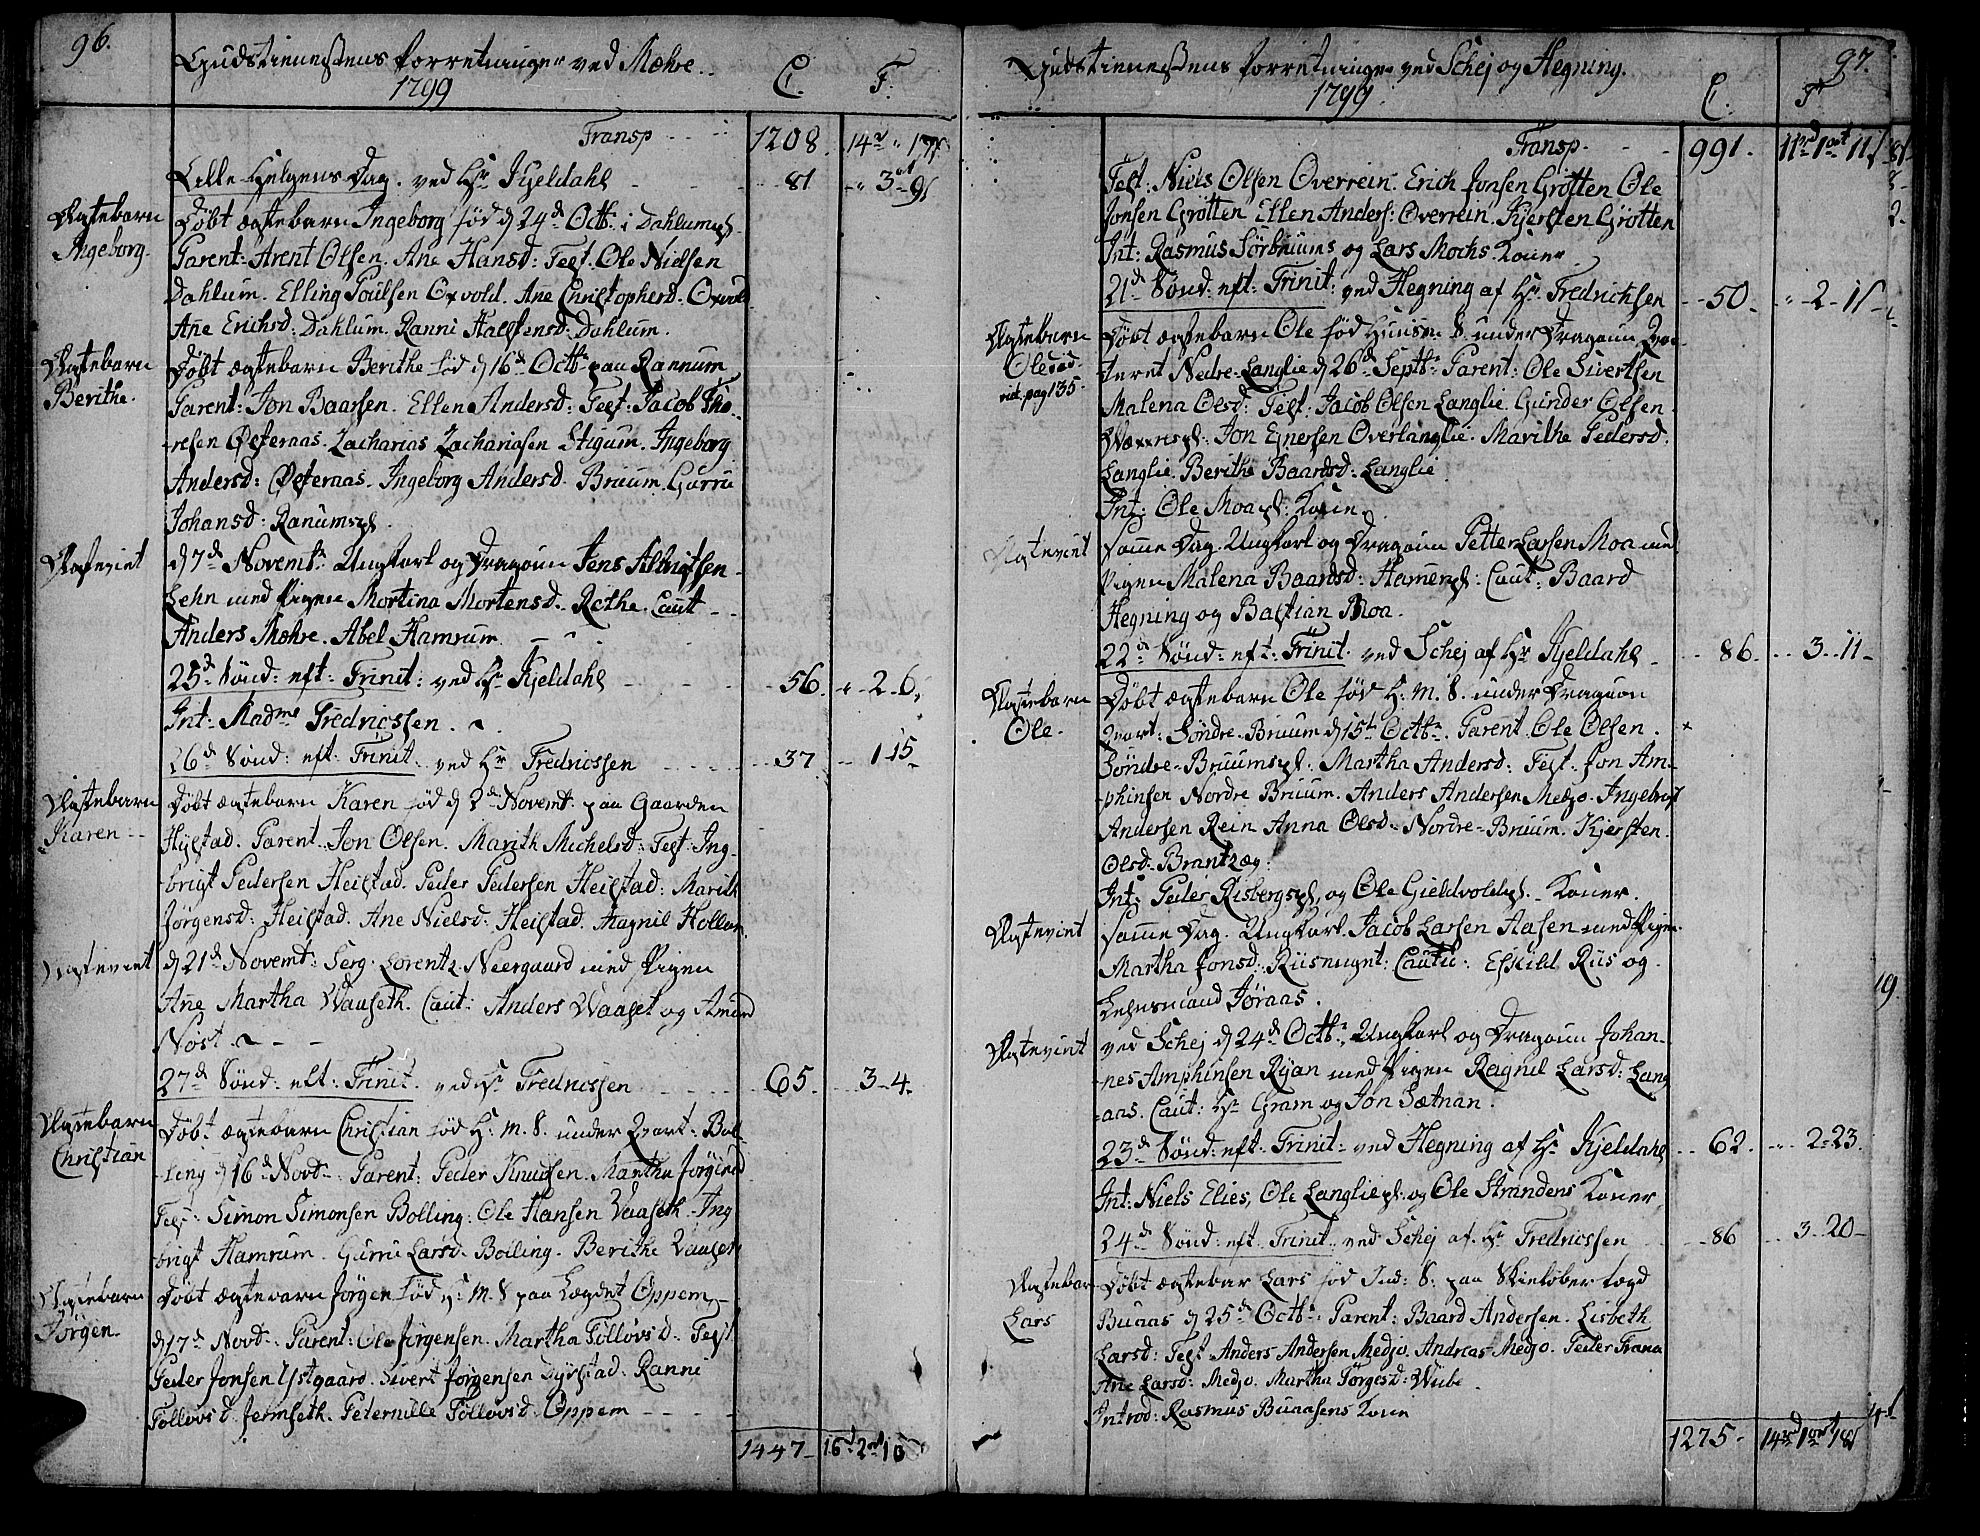 96.
Gudstienestens forretninger ved Mæhre
1799
C. T.
Transp 1208. 14
Lille Helgens Dag. ved Hr Kjeldahl 81 3 9
Ægtebarn Ingeborg.
Døbt ægtebarn Ingeborg fød d 24d Octb: i Dahlumspl.
Parent: Arent Olsen. Ane Hansd: Test. Ole Nielsen
Dahlum. Elling Poulsen Oxvold. Ane Christophersd. Oxvold
Ane Erichsd: Dahlum. Ranni Halstensd: Dahlum.
Ægtebarn Berithe.
Døbt ægtebarn Berithe fød d 16d Octb: paa Rannum
Parent: Jon Baarsen. Ellen Andersd: Test: Jacob Tho-
resen Østeraas. Zacharias Zachariasen Stigum. Ingeborg
Andersd: Østeraas. Ingeborg Andersd. Bruum. Gurru
Johansd: Ranumspl.
Ægteviet
d 7d Novemb: Ungkarl og Dragoun Jens Albrigtsen
Lehn med Pigen Mortina Mortensd. Rothe. Caut
Anders Mæhre. Abel Hamrum.
25d Sønd: eft: Trinit: ved Hr Kjeldahl 56. 2-6.
Int: Madme Fredricssen.
26d Sønd: eft: Trinit. ved Hr Fredricssen 37. 1-15
Ægtebarn Karen
Døbt ægtebarn Karen fød d 2d Novemt. paa Gaarden
Hylstad. Parent. Jon Olsen. Marith Michelsd: Test: Ing-
brigt Pedersen Heilstad. Peder Pedersen Heilstad: Marith
Jørgensd: Heilstad. Ane Nielsd: Heilstad. Magnil Hollan.
Ægteviet
d 21d Novemt: Serg. Lorentz Neergaard med Pigen
Ane Martha Waaseth. Caut: Anders Waaset og Amund
Nøst
27d Sønd: eft: Trinit. ved Hr Fredricssen 65. 3-4.
Ægtebarn Christian
Døbt ægtebarn Christian fød H: M. S. under Qvart: Bol-
leng d 16d Novb. Parent: Peder Knudsen. Martha Jørgensd
Test: Simon Simonsen Bolling: Ole Hansen Vaaseth. Ing
brigt Hamrum. Gurru Larsd. Bolling. Berithe Vaaseth
Ægtebarn Jørgen.
Døbt ægtebarn Jørgen fød H: M. S paa Lægdet Oppem
d 17d Novb. Parent: Ole Jørgensen. Martha Tollovsd: Test
Peder Jonsen Ystgaard. Sivert Jørgensen Dylstad. Ranni
Tollovsd. Jermseth. Peternille Tollovsd. Oppem
1447. 16 2 10
97.
Gudstienestens forretninger ved Schej og Hegning.
1799.
C. T
Transp. 991. 11rd 1ort 11s
Test: Niels Olsen Overrein. Erich Jonsen Grøtten Ole
Jonsen Grøtten Ellen Anders: Overrein. Kjersten Grøtten
Int: Rasmus Sørbruums og Lars Mochs. Koner
21d Sønd: eft: Trinit: ved Hegning af Hr Fredrichsen 50. 2-1s
Ægtebarn Ole
vid. pag 135
Døbt ægtebarn Ole fød Huusm. S. under Dragoun Qvar-
teret Nedre-Langlie d 26d Septb: Parent: Ole Sivertsen
Malena Olsd: Test: Jacob Olsen Langlie. Gunder Olsen
Jon Ejnersen Overlanglie. Marithe Pedersd.
Langlie. Berithe Baardsd: Langlie
Int: Ole Moaspl: Kone.
Ægteviet
Samme Dag. Ungkarl og Dragoun Petter Larsen Moa med
Pigen Malena Baardsd: Hamerspl: Caut: Baard
Hegning og Bastian Moa.
22d Sønd: eft: Trinit. ved Schej af Hr Kjeldahl 86. 3-11
Ægtebarn Ole.
Døbt ægtebarn Ole fød H: M. S. under Dragoun
Qvart: Søndre. Bruum d 15d Octb: Parent. Ole Olsen.
Søndre-Bruumspl: Martha Andersd: Test: Jon Am-
phinsen Nordre Bruum. Anders Andersen Medjo. Ingebrigt
Andersen Rein Anna Olsd. Nordre-Bruum. Kjersten.
Olsd. Brantzæg:
Int: Peder Risbergspl, og Ole Gieldvoldspl. Koner.
Ægteviet
Samme Dag. Ungkarl. Jacob Larsen Aasen med Pigen
Martha Jonsd. Caut: Eskild Riis og
Lehnsmand Jøraas.
Ægteviet
ved Schej d 24d Octb: Ungkarl og Dragoun Johan-
nes Amphinsen Ryan med Pigen Ragnil Larsd: Lang
aas. Caut: Hr Gram og Jon Sætnan.
23d Sønd: eft: Trinit: ved Hegning af Hr Kjeldahl 62. 2-23.
Int: Niels Elies, Ole Langliespl: og Ole Strandens Koner
24d Sønd: eft Trinit. ved Schej af Hr Fredricssen 86 3-20
Ægtebar Lars
Døbt ægtebar Lars fød Ind: S. paa Skieløber legd
Buaas d 25d Octb: Parent: Baard Andersen. Lisbeth
Larsd: Test Anders Andersen Medjo. Andreas Medjo. Peder Frana
Ane Larsd: Medjo. Martha Jørgesd: Wiibe.
Introd: Rasmus Buaasens Kone
1275. 14rd 1ort 18s